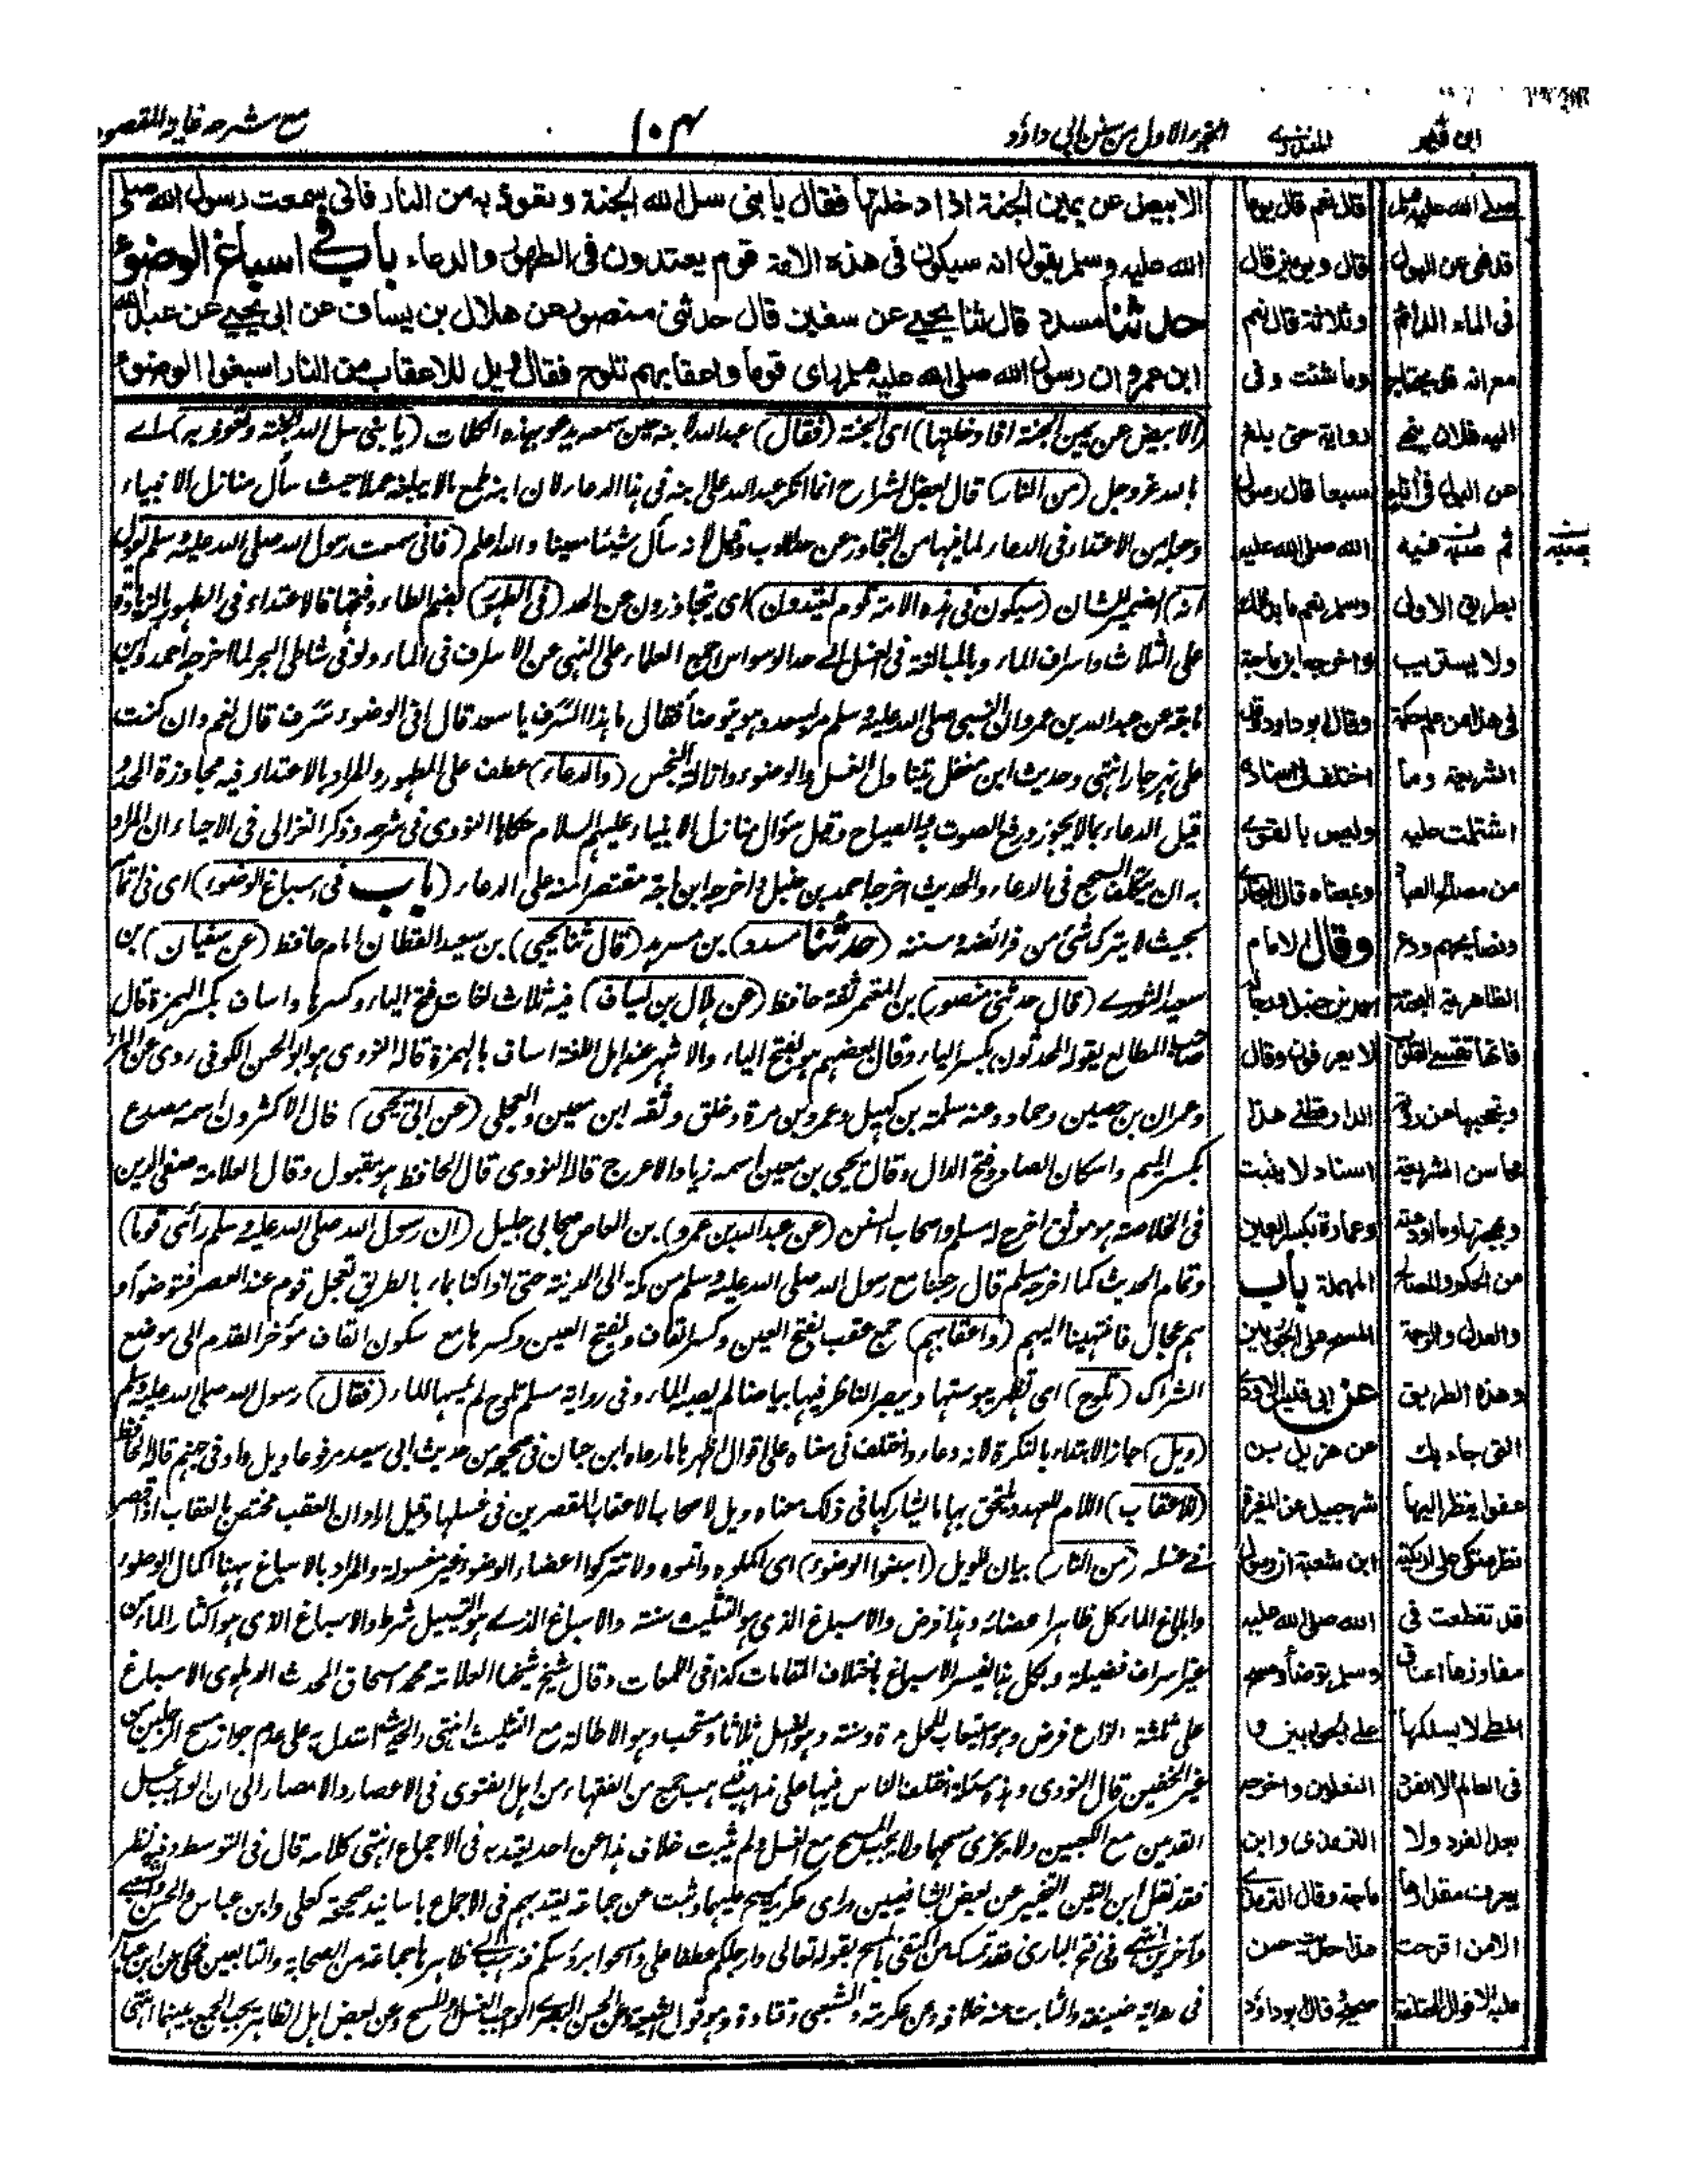 ابن قيم
المنذري
الجزء الاول من سنن ابي داؤد
١٠٤
مع شرحه غاية المقصود
الابيض عن يمين الجنة اذا دخلتها فقال يا بنى سل الله الجنة وتعوذ به من النار فانى سمعت رسول الله صلى
الله عليه وسلم يقول انه سيكون فى هذه الامة قوم يعتدون فى الطهور والدعاء باب فى اسباغ الوضوء
حدثنا مسدد قال ثنا يحيى عن سفين قال حدثنى منصور عن هلال بن يساف عن ابى يحيى عن عبد الله
ابن عمرو ان رسول الله صلى الله عليه وسلم راى قوما واعقابهم تلوح فقال ويل للاعقاب من النار اسبغوا الوضوء
(الابيض عن يمين الجنة اذا دخلتها) اى الجنة (فقال) عبد الله لابنه حين سمعه يدعو بهذه الكلمات (يا بنى سل الله الجنة وتعوذ به) اے
بالله عز وجل (من النار) قال بعض الشراح انما انكر عبد الله على ابنه فى هذا الدعاء لان ابنه طمع ما لا يبلغه عملا حيث سأل منازل الانبياء
وجعله من الاعتداء فى الدعاء لما فيها من التجاوز عن حد الادب وقيل لانه سأل شيئا معينا والله اعلم (فانى سمعت رسول الله صلى الله عليه وسلم يقول
انه) الضمير للشان (سيكون فى هذه الامة قوم يعتدون) اى يتجاوزون عن الحد (فى الطهور) بضم الطاء وفتحها فالاعتداء فى الطهور بالزيادة
على الثلاث واسراف الماء وبالمبالغة فى الغسل الى حد الوسواس اجمع العلماء على النهى عن الاسراف فى الماء ولو فى شاطئ البحر لما اخرجه احمد وابن
ماجة عن عبد الله بن عمرو ان النبى صلى الله عليه وسلم مر بسعد وهو يتوضأ فقال ما هذا السرف يا سعد قال افى الوضوء سرف قال نعم وان كنت
على نهر جار انتهى وحديث ابن مغفل يتناول الغسل والوضوء وازالة النجس (والدعاء) عطف على الطهور والمراد بالاعتداء فيه مجاوزة الحد
قيل الدعاء بما لا يجوز ورفع الصوت به والصياح وقيل سؤال منازل الانبياء عليهم السلام حكاها النووى فى شرحه وذكر الغزالى فى الاحياء ان المراد
به ان يتكلف السجع فى الدعاء والحديث اخرجه احمد بن حنبل واخرجه ابن ماجة مقتصرا منه على الدعاء (باب فى اسباغ الوضوء) اى فى اتمامه
بحيث لا يترك شئ من فرائضه وسننه (حدثنا مسدد) بن مسرهد (قال ثنا يحيى) بن سعيد القطان امام حافظ (عن سفيان) بن
سعيد الثورے (قال حدثنى منصور) بن المعتمر ثقة حافظ (عن هلال بن يساف) فيه ثلاث لغات فتح الياء وكسرها واساف بكسر الهمزة قال
صاحب المطالع يقوله المحدثون بكسر الياء وقال بعضهم هو بفتح الياء والاشهر عند اهل اللغة اساف بالهمزة قاله النووى هو ابو الحسن الكوفى روى عن البراء
وعمران بن حصين وحماد وعنه سلمة بن كهيل وعمرو بن مرة وخلق وثقه ابن معين والعجلى (عن ابى يحيى) قال الاكثرون اسمه مصدع
بكسر الميم واسكان الصاد وفتح الدال وقال يحيى بن معين اسمه زياد الاعرج قاله النووى قال الحافظ هو مقبول وقال العلامة صفى الدين
فى الخلاصة هو موثق اخرج له مسلم واصحاب السنن (عن عبد الله بن عمرو) بن العاص صحابى جليل (ان رسول الله صلى الله عليه وسلم رأى قوما)
وتمام الحديث كما اخرجه مسلم قال رجعنا مع رسول الله صلى الله عليه وسلم من مكة الى المدينة حتى اذا كنا بماء بالطريق تعجل قوم عند العصر فتوضأو
هم عجال فانتهينا اليهم (واعقابهم) جمع عقب بفتح العين وكسر القاف وبفتح العين وكسرها مع سكون القاف مؤخر القدم الى موضع
الشراك (تلوح) اى تظهر يبوستها ويبصر الناظر فيها بياضا لم يصبه الماء وفى رواية مسلم تلوح لم يمسها الماء (فقال) رسول الله صلى الله عليه وسلم
(ويل) جاز الابتداء بالنكرة لانه دعاء واختلف فى معناه على اقوال اظهرها ما رواه ابن حبان فى صحيحه من حديث ابى سعيد مرفوعا ويل واد فى جهنم قاله الحافظ
(للاعقاب) اللام للعهد ويلحق بها ما يشاركها فى ذلك معناه ويل لاصحاب الاعقاب المقصرين فى غسلها وقيل اراد ان العقب مختص بالعقاب اذا قصر
فى غسله (من النار) بيان للويل (اسبغوا الوضوء) اى اكملوه واتموه ولا تتركوا اعضاء الوضوء غير مغسولة والمراد بالاسباغ ههنا اكمال الوضوء
وابلاغ الماء كل ظاهر اعضائه وهذا فرض والاسباغ الذى هو التثليث سنة والاسباغ الذے هو التسييل شرط والاسباغ الذى هو اكثار الماء من
غير اسراف فضيلة وبكل هذا يفسر الاسباغ باختلاف المقامات كذا فى اللمعات وقال شيخ شيخنا العلامة محمد اسحاق المحدث الدهلوى الاسباغ
على ثلثة انواع فرض وهو استيعاب المحل مرة وسنة وهو الغسل ثلاثا ومستحب وهو الاطالة مع التثليث انتهى والحديث استدل به على عدم جواز مسح الرجلين من
غير الخفين قال النووى وهذه مسئلة اختلف الناس فيها على مذاهب فذهب جمع من الفقهاء من اهل الفتوى فى الاعصار والامصار الى ان الواجب غسل
القدمين مع الكعبين ولا يجزى مسحهما ولا يجب المسح مع الغسل ولم يثبت خلاف هذا عن احد يعتد به فى الاجماع انتهى كلامه قال فى التوسط وفيه نظر
فقد نقل ابن التين التخيير عن بعض الشافعيين وراى عكرمة يمسح عليهما وثبت عن جماعة يعتد بهم فى الاجماع باسانيد صحيحة كعلى وابن عباس والحسن والشعبى
وآخرين انتهى وفى فتح البارى فقد تمسك من اكتفى بالمسح بقوله تعالى وارجلكم عطفا على وامسحوا برؤسكم فذهب الى ظاهرها جماعة من الصحابة والتابعين فحكى عن ابن عباس
فى رواية ضعيفة والثابت عنه خلافه وعن عكرمة والشعبى وقتادة وهو قول الشيعة وعن الحسن البصرى الواجب الغسل او المسح وعن بعض اهل الظاهر يجب الجمع بينهما انتهى
قال نعم قال يوما
قال ويومين قال
وثلاثة قال نعم
وما شئت وفى
رواية حتى بلغ
سبعا قال رسول
الله صلى الله عليه
وسلم نعم ما بدا لك
واخرجه ابن ماجة
وقال ابو داود وقد
اختلف فى اسناده
وليس بالقوے
وبمعناه قال البخارى
وقال الامام
احمد بن حنبل رجاله
لا يعرفون وقال
الدارقطنے هذا
اسناد لا يثبت
وعمارة بكسر العين
المهملة باب
المسح على الجوربين
عن ابى قيس الاودى
عن هزيل بن
شرحبيل عن المغيرة
ابن شعبة ان رسول
الله صلى الله عليه
وسلم توضأ ومسح
على الجوربين و
النعلين واخرجه
الترمذى وابن
ماجة وقال الترمذے
هذا حديث حسن
صحيح قال ابو داؤد
صلى الله عليه وسلم
قد نهى عن البول
فى الماء الدائم
مع انه قد يحتاج
اليه فلان ينهى
عن البول فى اناء
ثم صبه فيه
صبه
بطريق الاولى
ولا يستريب
فى هذا من علم حكمة
الشريعة وما
اشتملت عليه
من مصالح العباد
ونصايحهم ودع
الظاهرية البحتة
فانها تقسى القلوب
وتحجبها عن رؤية
محاسن الشريعة
وبهجتها وما اودعته
من الحكم والمصالح
والعدل والرحمة
وهذه الطريق
التى جاءتك
عفوا تنظر اليها
نظر متكئ على اريكته
قد تقطعت فى
مفاوزها اعناق
المطى لا يسلكها
فى العالم الا الفرد
بعد الفرد ولا
يعرف مقدارها
الا من اقرحت